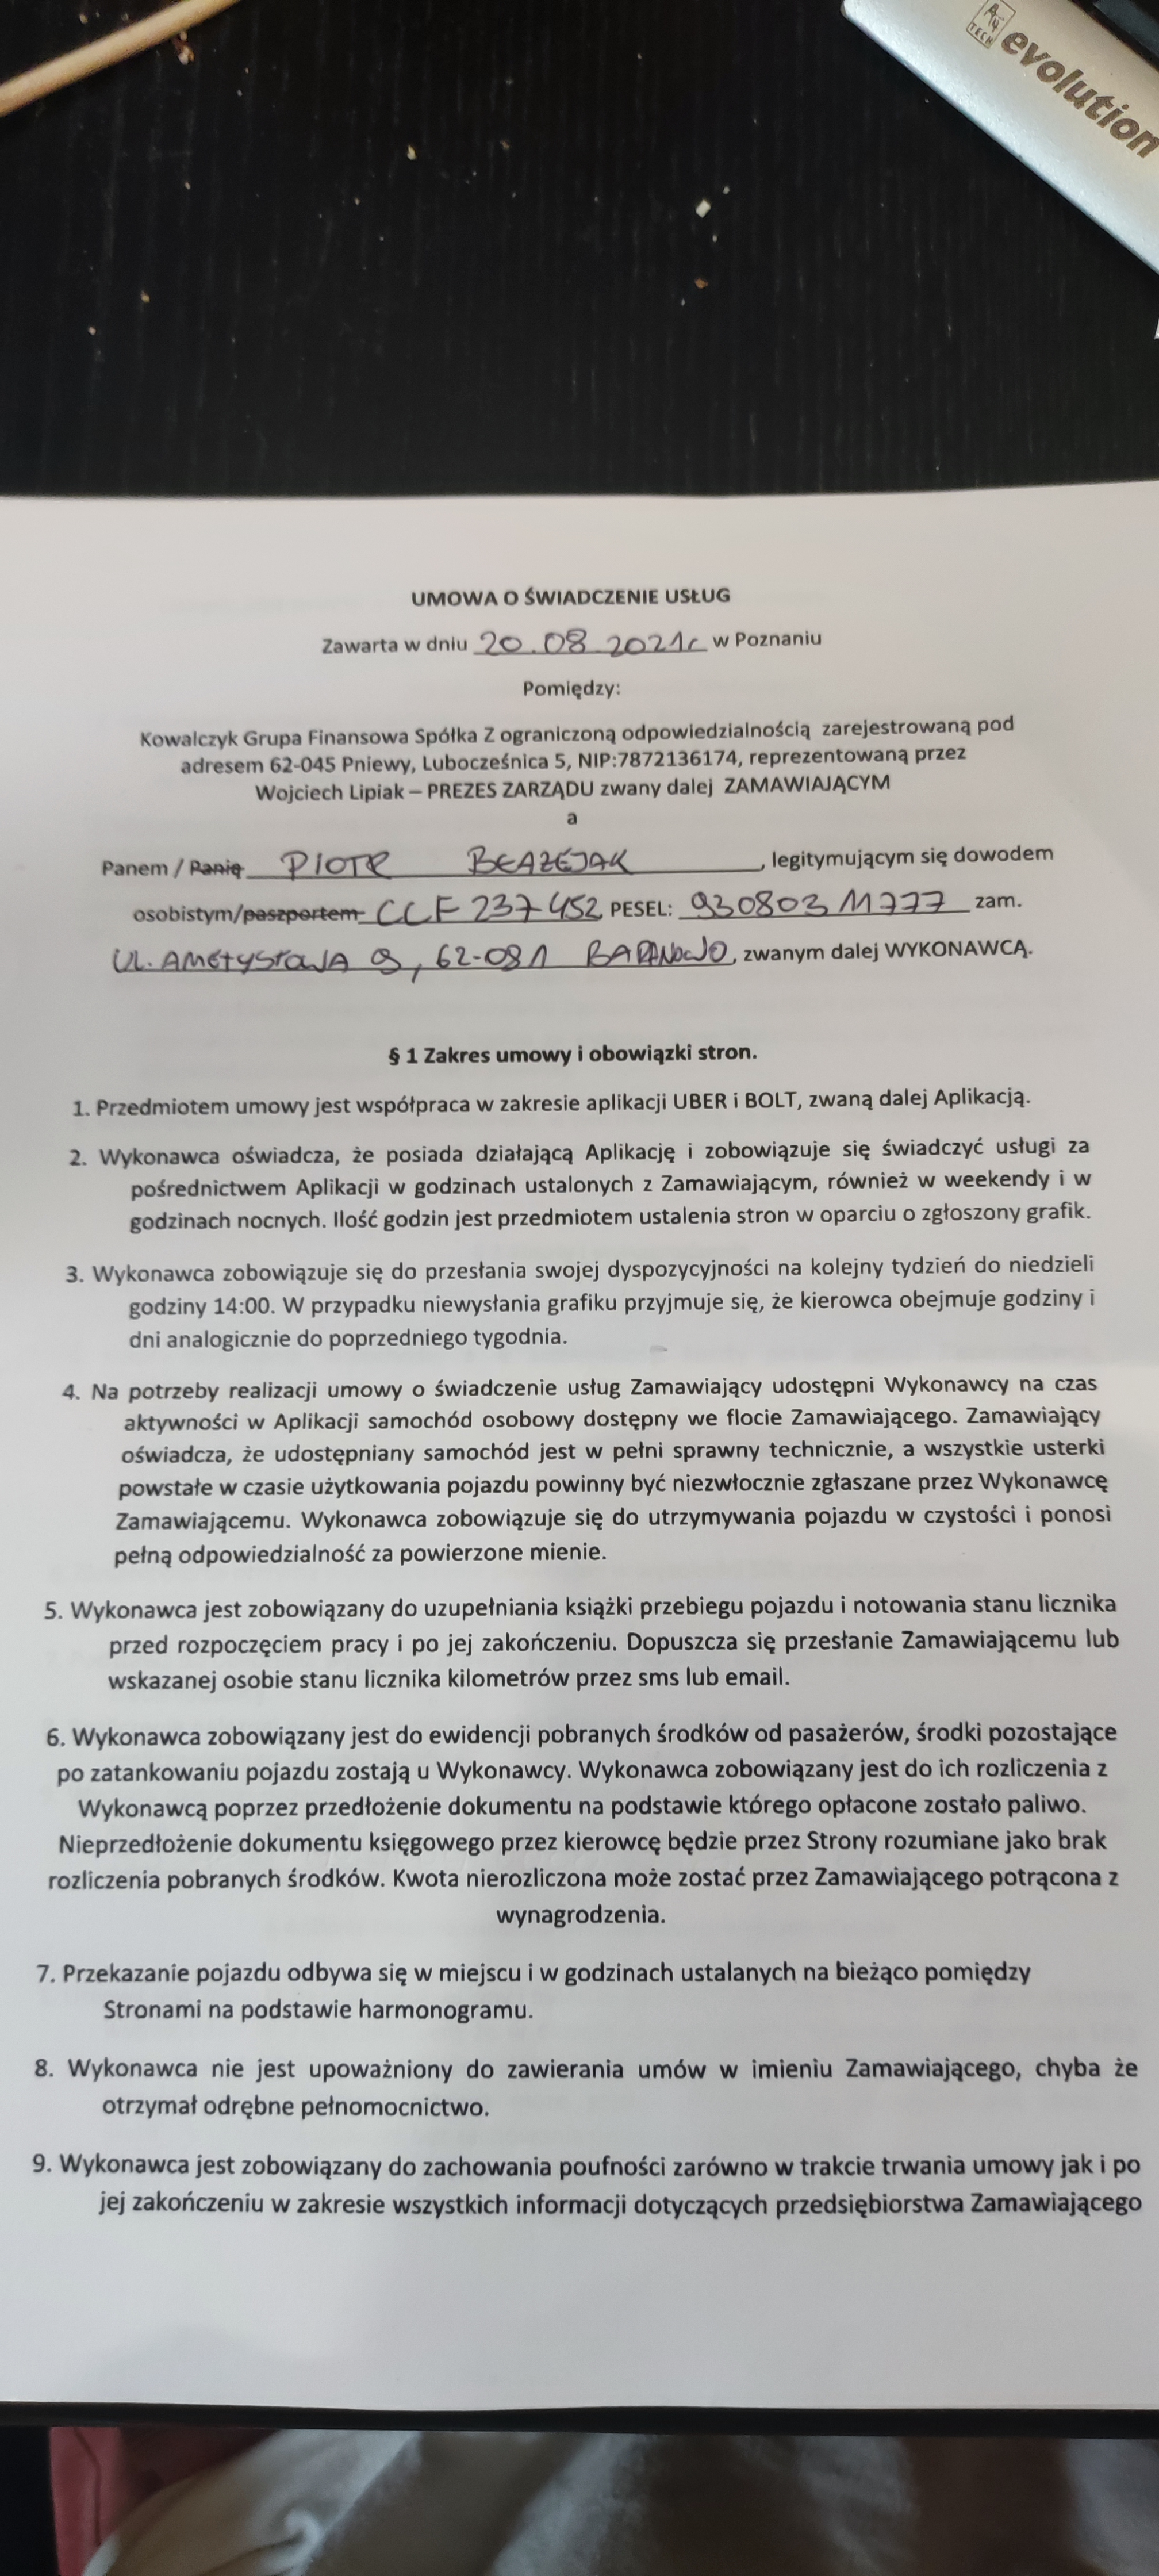 A4 TECH
evolution
UMOWA O ŚWIADCZENIE USŁUG
Zawarta w dniu 20.08.2021r w Poznaniu
Pomiędzy:
Kowalczyk Grupa Finansowa Spółka Z ograniczoną odpowiedzialnością zarejestrowaną pod
adresem 62-045 Pniewy, Lubocześnica 5, NIP:7872136174, reprezentowaną przez
Wojciech Lipiak – PREZES ZARZĄDU zwany dalej ZAMAWIAJĄCYM
a
Panem / Panią PIOTR BŁAŻEJAK, legitymującym się dowodem
osobistym/paszportem CCF 237452 PESEL: 93080311777 zam.
UL. AMETYSTOWA 9, 62-081 BARANOWO, zwanym dalej WYKONAWCĄ.
§ 1 Zakres umowy i obowiązki stron.
1. Przedmiotem umowy jest współpraca w zakresie aplikacji UBER i BOLT, zwaną dalej Aplikacją.
2. Wykonawca oświadcza, że posiada działającą Aplikację i zobowiązuje się świadczyć usługi za
pośrednictwem Aplikacji w godzinach ustalonych z Zamawiającym, również w weekendy i w
godzinach nocnych. Ilość godzin jest przedmiotem ustalenia stron w oparciu o zgłoszony grafik.
3. Wykonawca zobowiązuje się do przesłania swojej dyspozycyjności na kolejny tydzień do niedzieli
godziny 14:00. W przypadku niewysłania grafiku przyjmuje się, że kierowca obejmuje godziny i
dni analogicznie do poprzedniego tygodnia.
4. Na potrzeby realizacji umowy o świadczenie usług Zamawiający udostępni Wykonawcy na czas
aktywności w Aplikacji samochód osobowy dostępny we flocie Zamawiającego. Zamawiający
oświadcza, że udostępniany samochód jest w pełni sprawny technicznie, a wszystkie usterki
powstałe w czasie użytkowania pojazdu powinny być niezwłocznie zgłaszane przez Wykonawcę
Zamawiającemu. Wykonawca zobowiązuje się do utrzymywania pojazdu w czystości i ponosi
pełną odpowiedzialność za powierzone mienie.
5. Wykonawca jest zobowiązany do uzupełniania książki przebiegu pojazdu i notowania stanu licznika
przed rozpoczęciem pracy i po jej zakończeniu. Dopuszcza się przesłanie Zamawiającemu lub
wskazanej osobie stanu licznika kilometrów przez sms lub email.
6. Wykonawca zobowiązany jest do ewidencji pobranych środków od pasażerów, środki pozostające
po zatankowaniu pojazdu zostają u Wykonawcy. Wykonawca zobowiązany jest do ich rozliczenia z
Wykonawcą poprzez przedłożenie dokumentu na podstawie którego opłacone zostało paliwo.
Nieprzedłożenie dokumentu księgowego przez kierowcę będzie przez Strony rozumiane jako brak
rozliczenia pobranych środków. Kwota nierozliczona może zostać przez Zamawiającego potrącona z
wynagrodzenia.
7. Przekazanie pojazdu odbywa się w miejscu i w godzinach ustalanych na bieżąco pomiędzy
Stronami na podstawie harmonogramu.
8. Wykonawca nie jest upoważniony do zawierania umów w imieniu Zamawiającego, chyba że
otrzymał odrębne pełnomocnictwo.
9. Wykonawca jest zobowiązany do zachowania poufności zarówno w trakcie trwania umowy jak i po
jej zakończeniu w zakresie wszystkich informacji dotyczących przedsiębiorstwa Zamawiającego